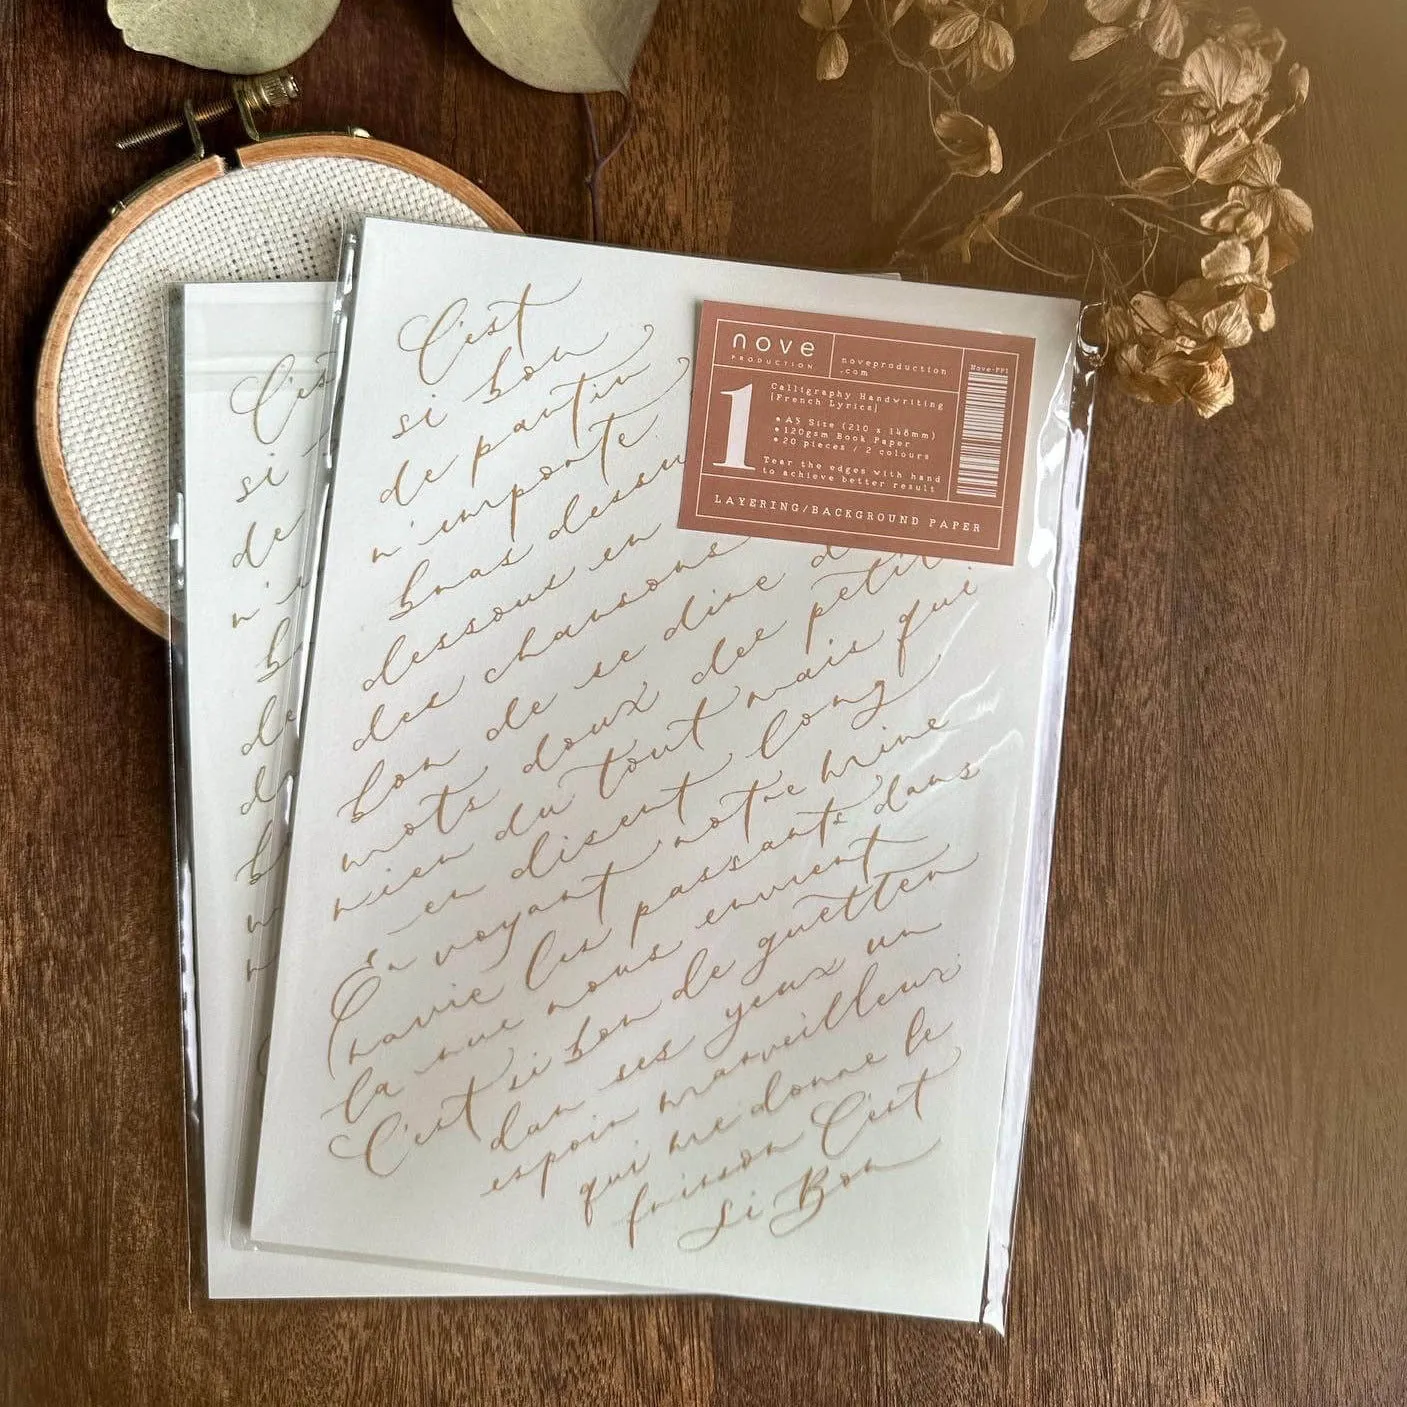 nove
PRODUCTION
noveproduction
.com
Nove-PP1
1
Calligraphy Handwriting
[French Lyrics]
• A5 Size (210 x 148mm)
• 120gsm Book Paper
• 20 pieces / 2 colours
Tear the edges with hand
to achieve better result
LAYERING/BACKGROUND PAPER
C'est
si bon
de partir
n'importe
bras dessu
dessous en
des chansons
bon de se dire d
mots doux des petit
rien du tout mais qui
en disent long
En voyant notre mine
ravie les passants dans
la rue nous envient
C'est si bon de guetter
dan ses yeux un
espoir marveilleur
qui me donne le
frisson C'est
si Bon
C'es
si
de
n'i
b
de
d
b
m
r